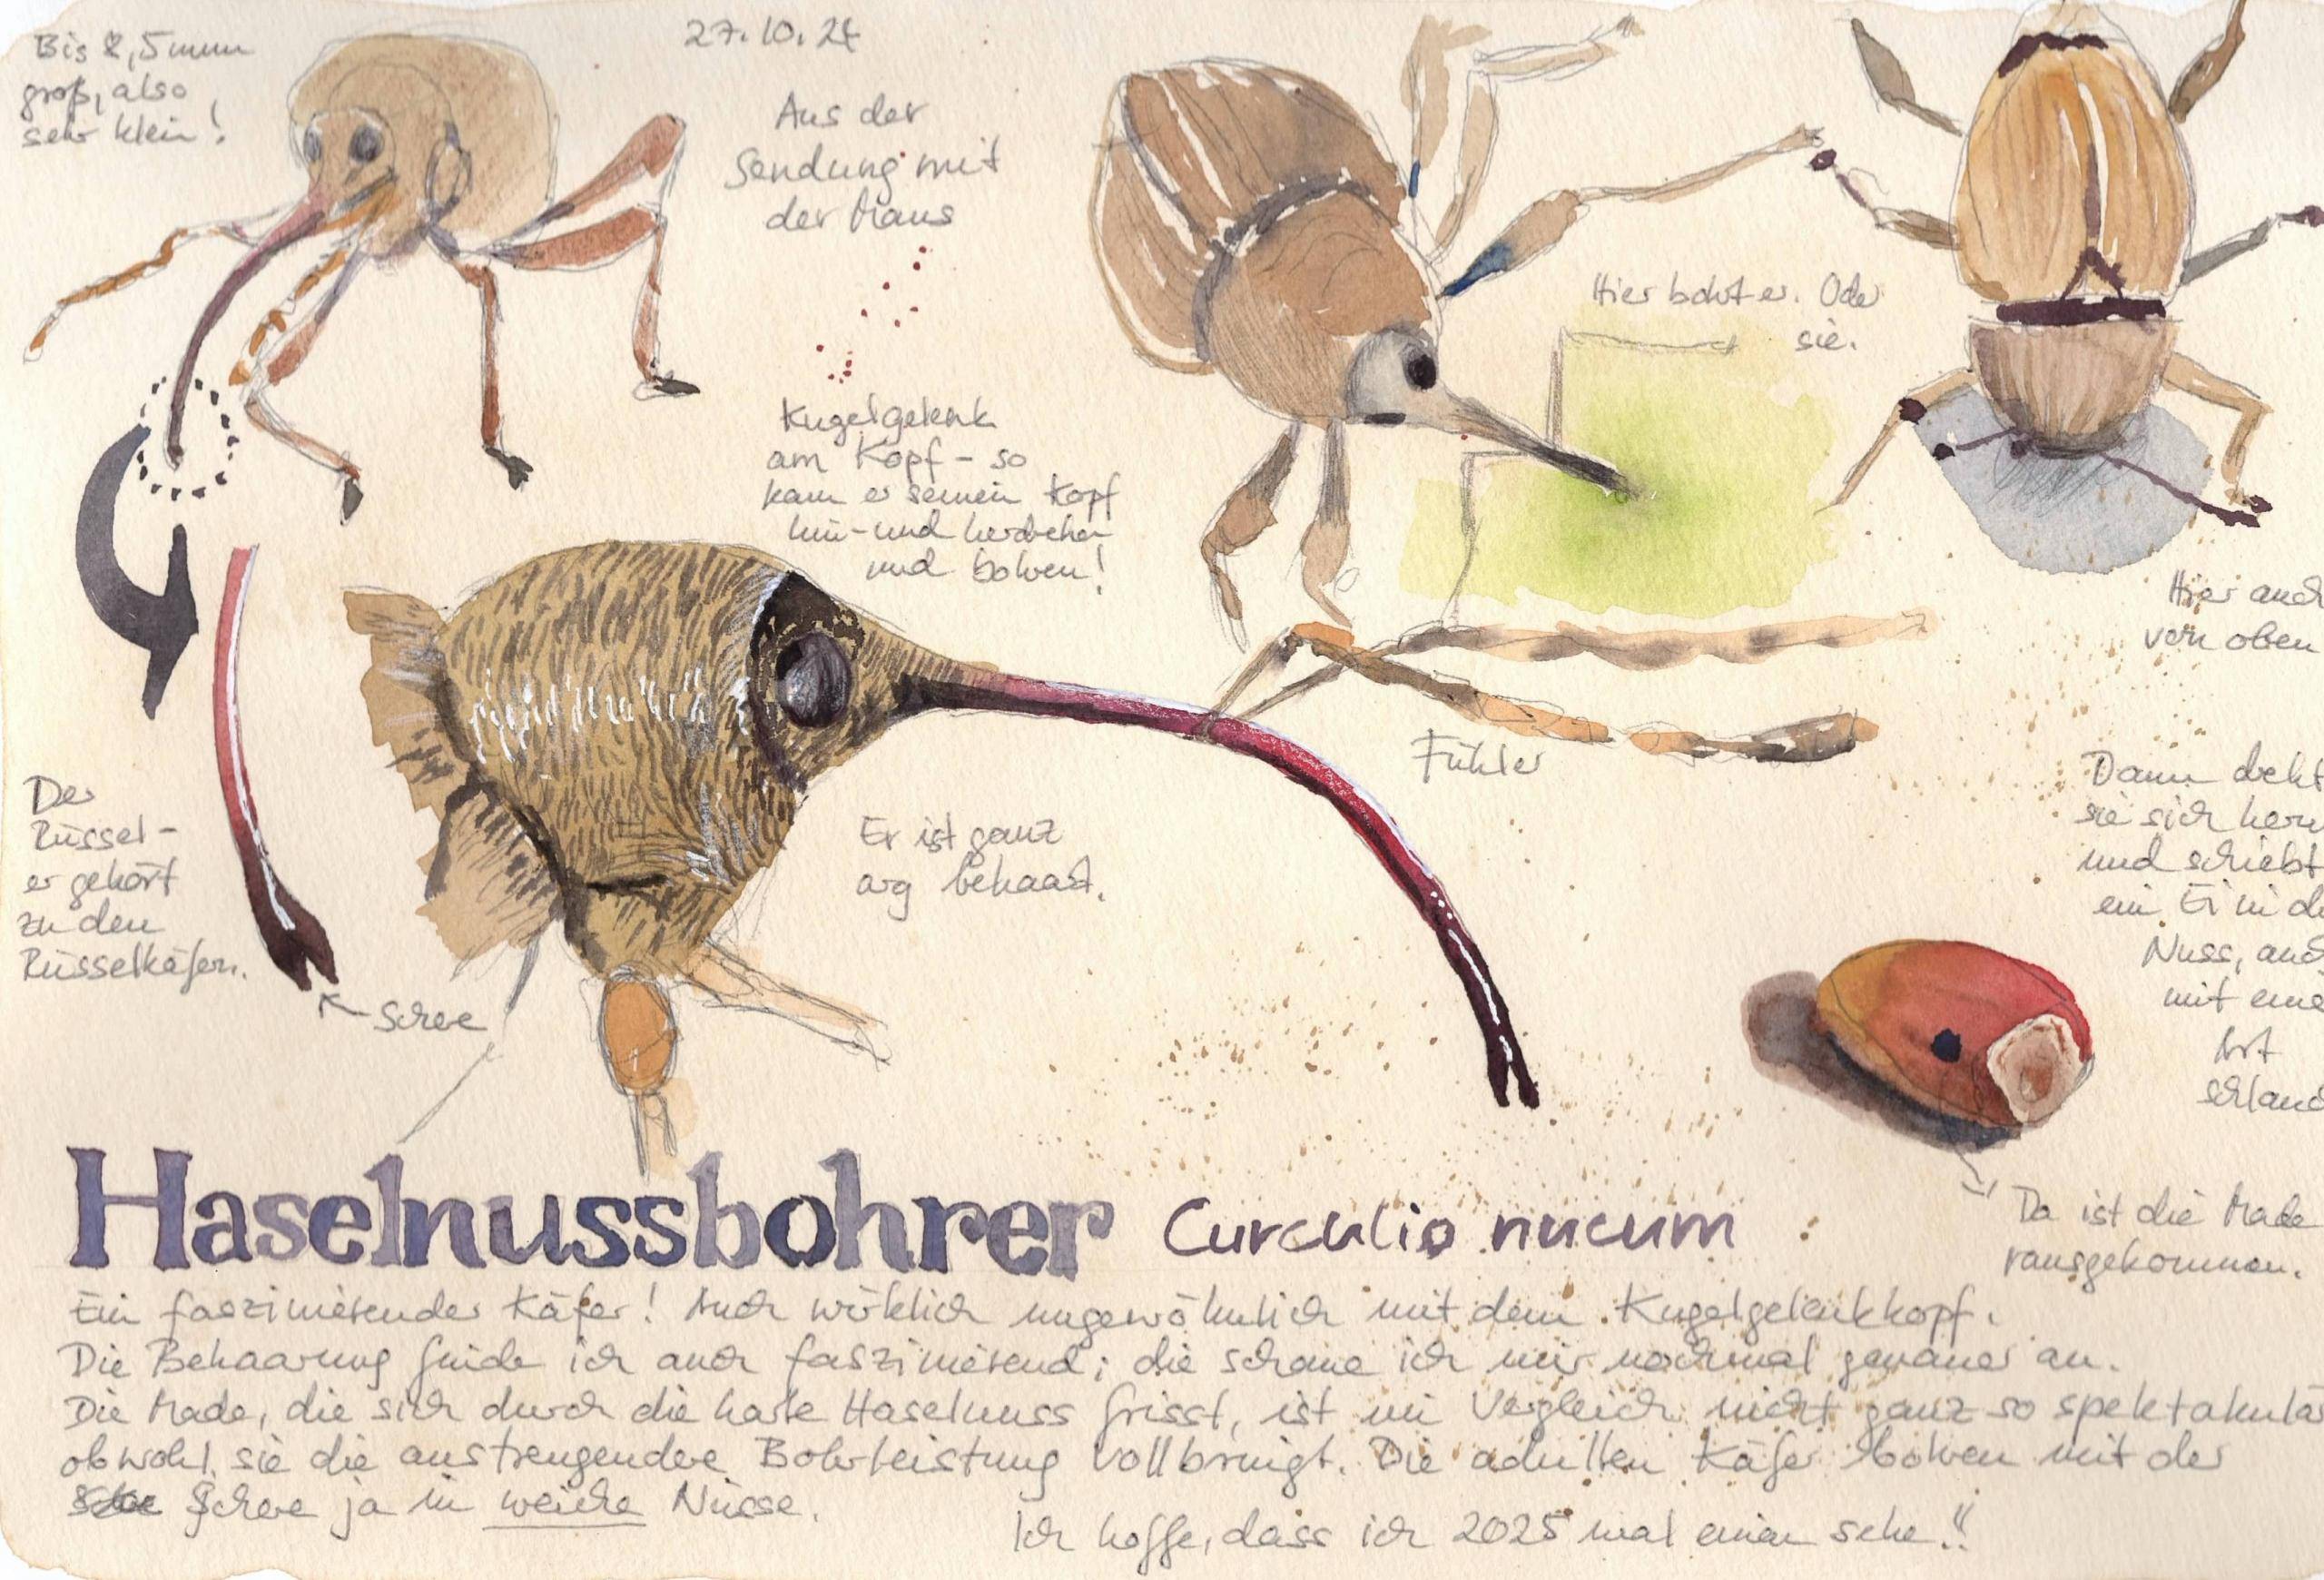 Bis 8,5 mm
groß, also
sehr klein!
27.10.24
Aus der
Sendung mit
der Maus
Kugelgelenk
am Kopf - so
kann er seinen Kopf
hin- und herdrehen
und bohren!
Hier bohrt er. Oder
sie.
Hier auch
von oben
Der
Rüssel -
er gehört
zu den
Rüsselkäfern.
Schere
Er ist ganz
arg behaart.
Fühler
Dann dreht
sie sich heru
und schiebt
ein Ei in d
Nuss, auch
mit eine
Art
schlauc
Da ist die Made
rausgekommen.
Haselnussbohrer Curculio nucum
Ein faszinierender Käfer! Auch wirklich ungewöhnlich mit dem Kugelgelenkkopf.
Die Behaarung finde ich auch faszinierend; die schaue ich mir nochmal genauer an.
Die Made, die sich durch die harte Haselnuss frisst, ist im Vergleich nicht ganz so spektakulär
obwohl sie die anstrengendere Bohrleistung vollbringt. Die adulten Käfer bohren mit der
Schere ja in weiche Nüsse.
Ich hoffe, dass ich 2025 mal einen sehe!!